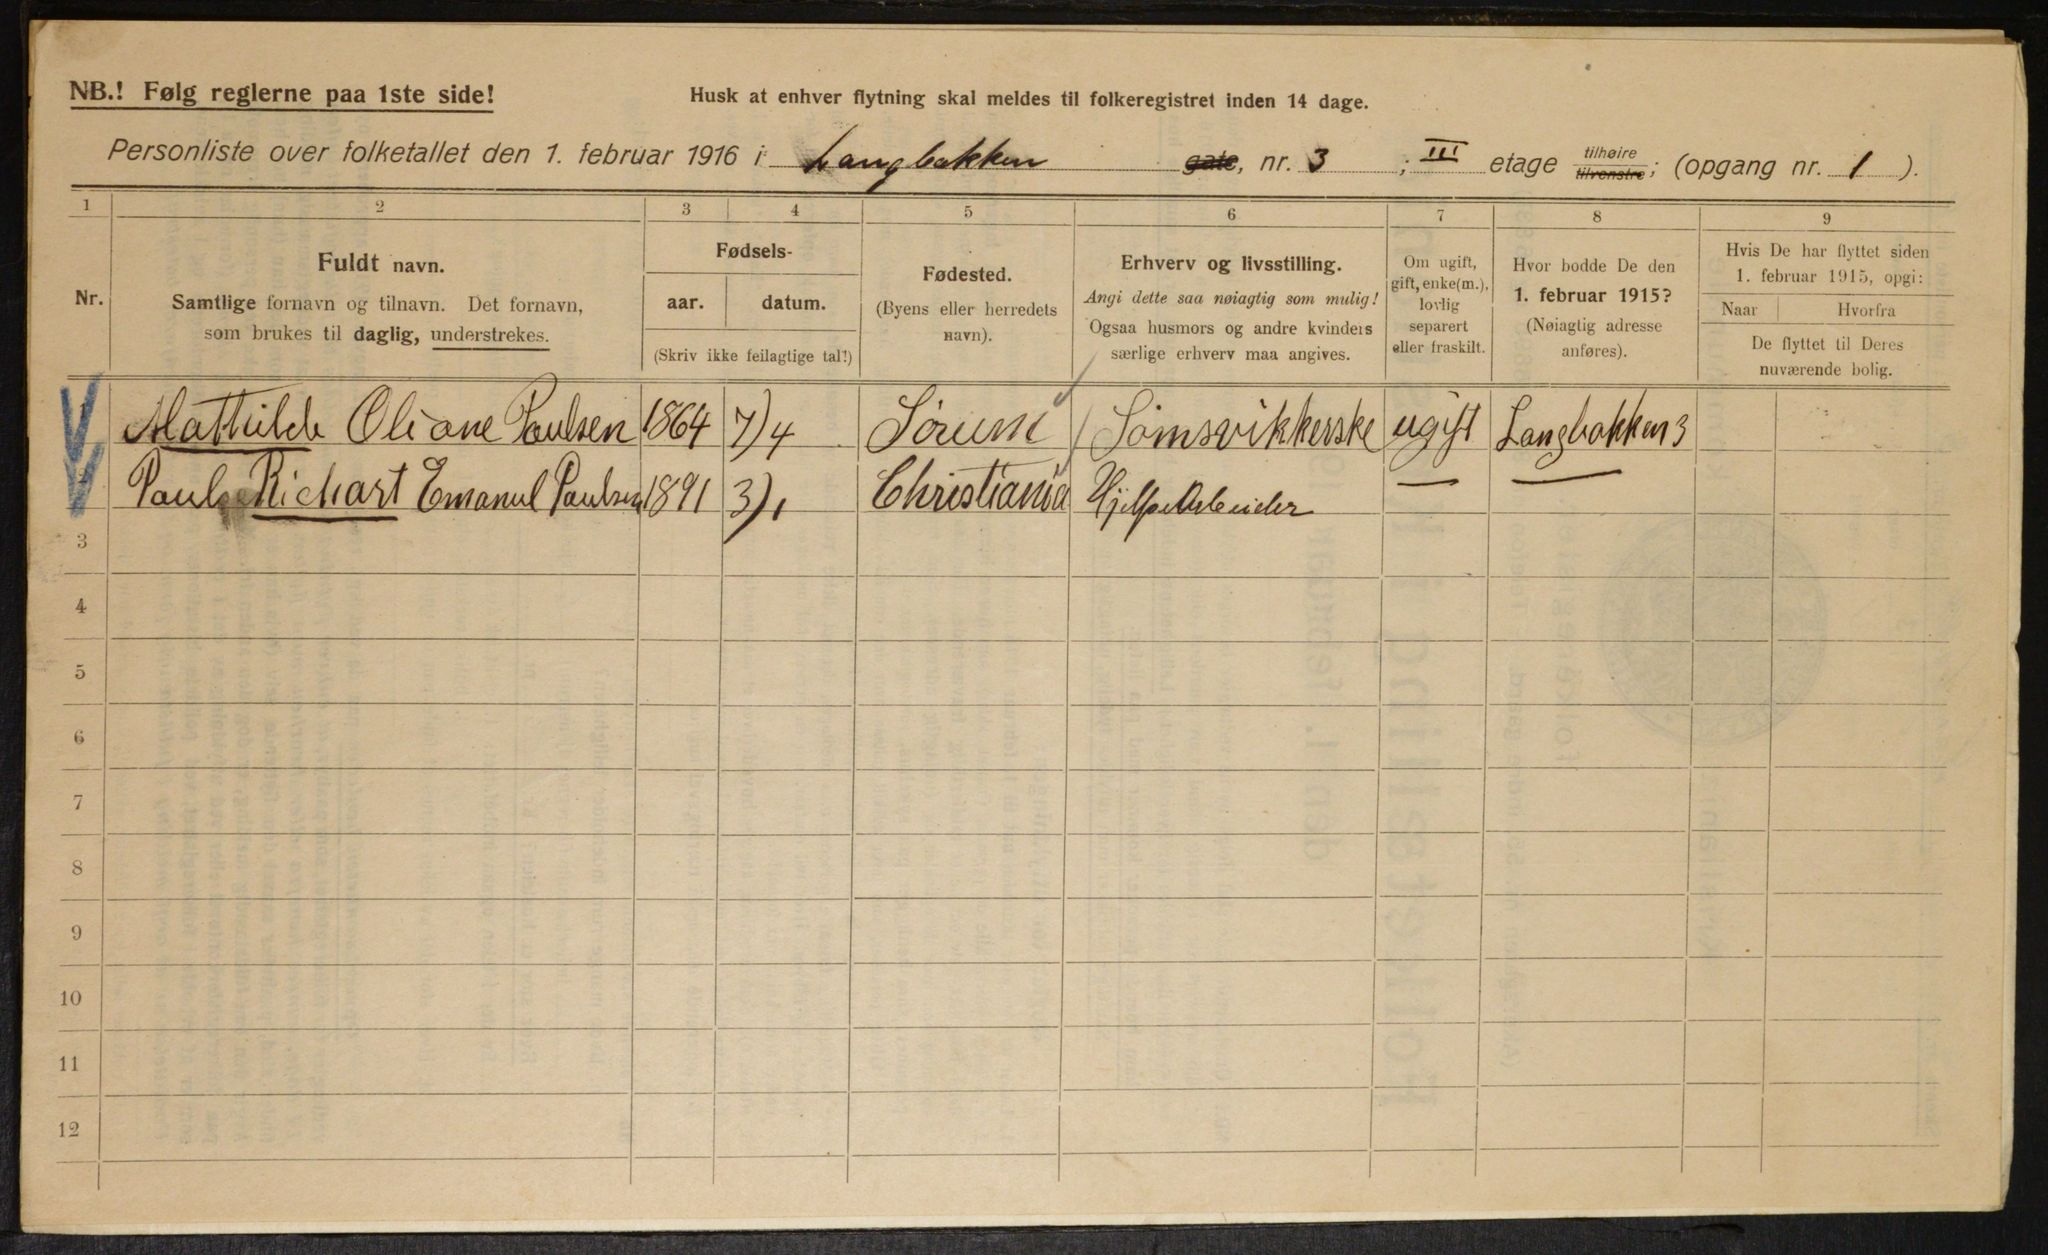 NB.! Følg reglerne paa 1ste side!
Husk at enhver flytning skal meldes til folkeregistret inden 14 dage.
Personliste over folketallet den 1. februar 1916 i Langbakken gate, nr. 3 ; III etage tilhøire tilvenstre; (opgang nr. 1 ).
1 2 3 4 5 6 7 8 9
Nr.
Fuldt navn.
Samtlige fornavn og tilnavn. Det fornavn,
som brukes til daglig, understrekes.
Fødsels-
aar. datum.
(Skriv ikke feilagtige tal!)
Fødested.
(Byens eller herredets
navn).
Erhverv og livsstilling.
Angi dette saa nøiagtig som mulig!
Ogsaa husmors og andre kvinders
særlige erhverv maa angives.
Om ugift,
gift, enke(m.),
lovlig
separert
eller fraskilt.
Hvor bodde De den
1. februar 1915?
(Nøiagtig adresse
anføres).
Hvis De har flyttet siden
1. februar 1915, opgi:
Naar Hvorfra
De flyttet til Deres
nuværende bolig.
Mathilde Oliane Paulsen 1864 7/4 Sørum Sømsvikkerske ugift Langbakken 3
Paul Richart Emanuel Paulsen 1891 3/1 Christiania Hjelpearbeider — —
3
4
5
6
7
8
9
10
11
12